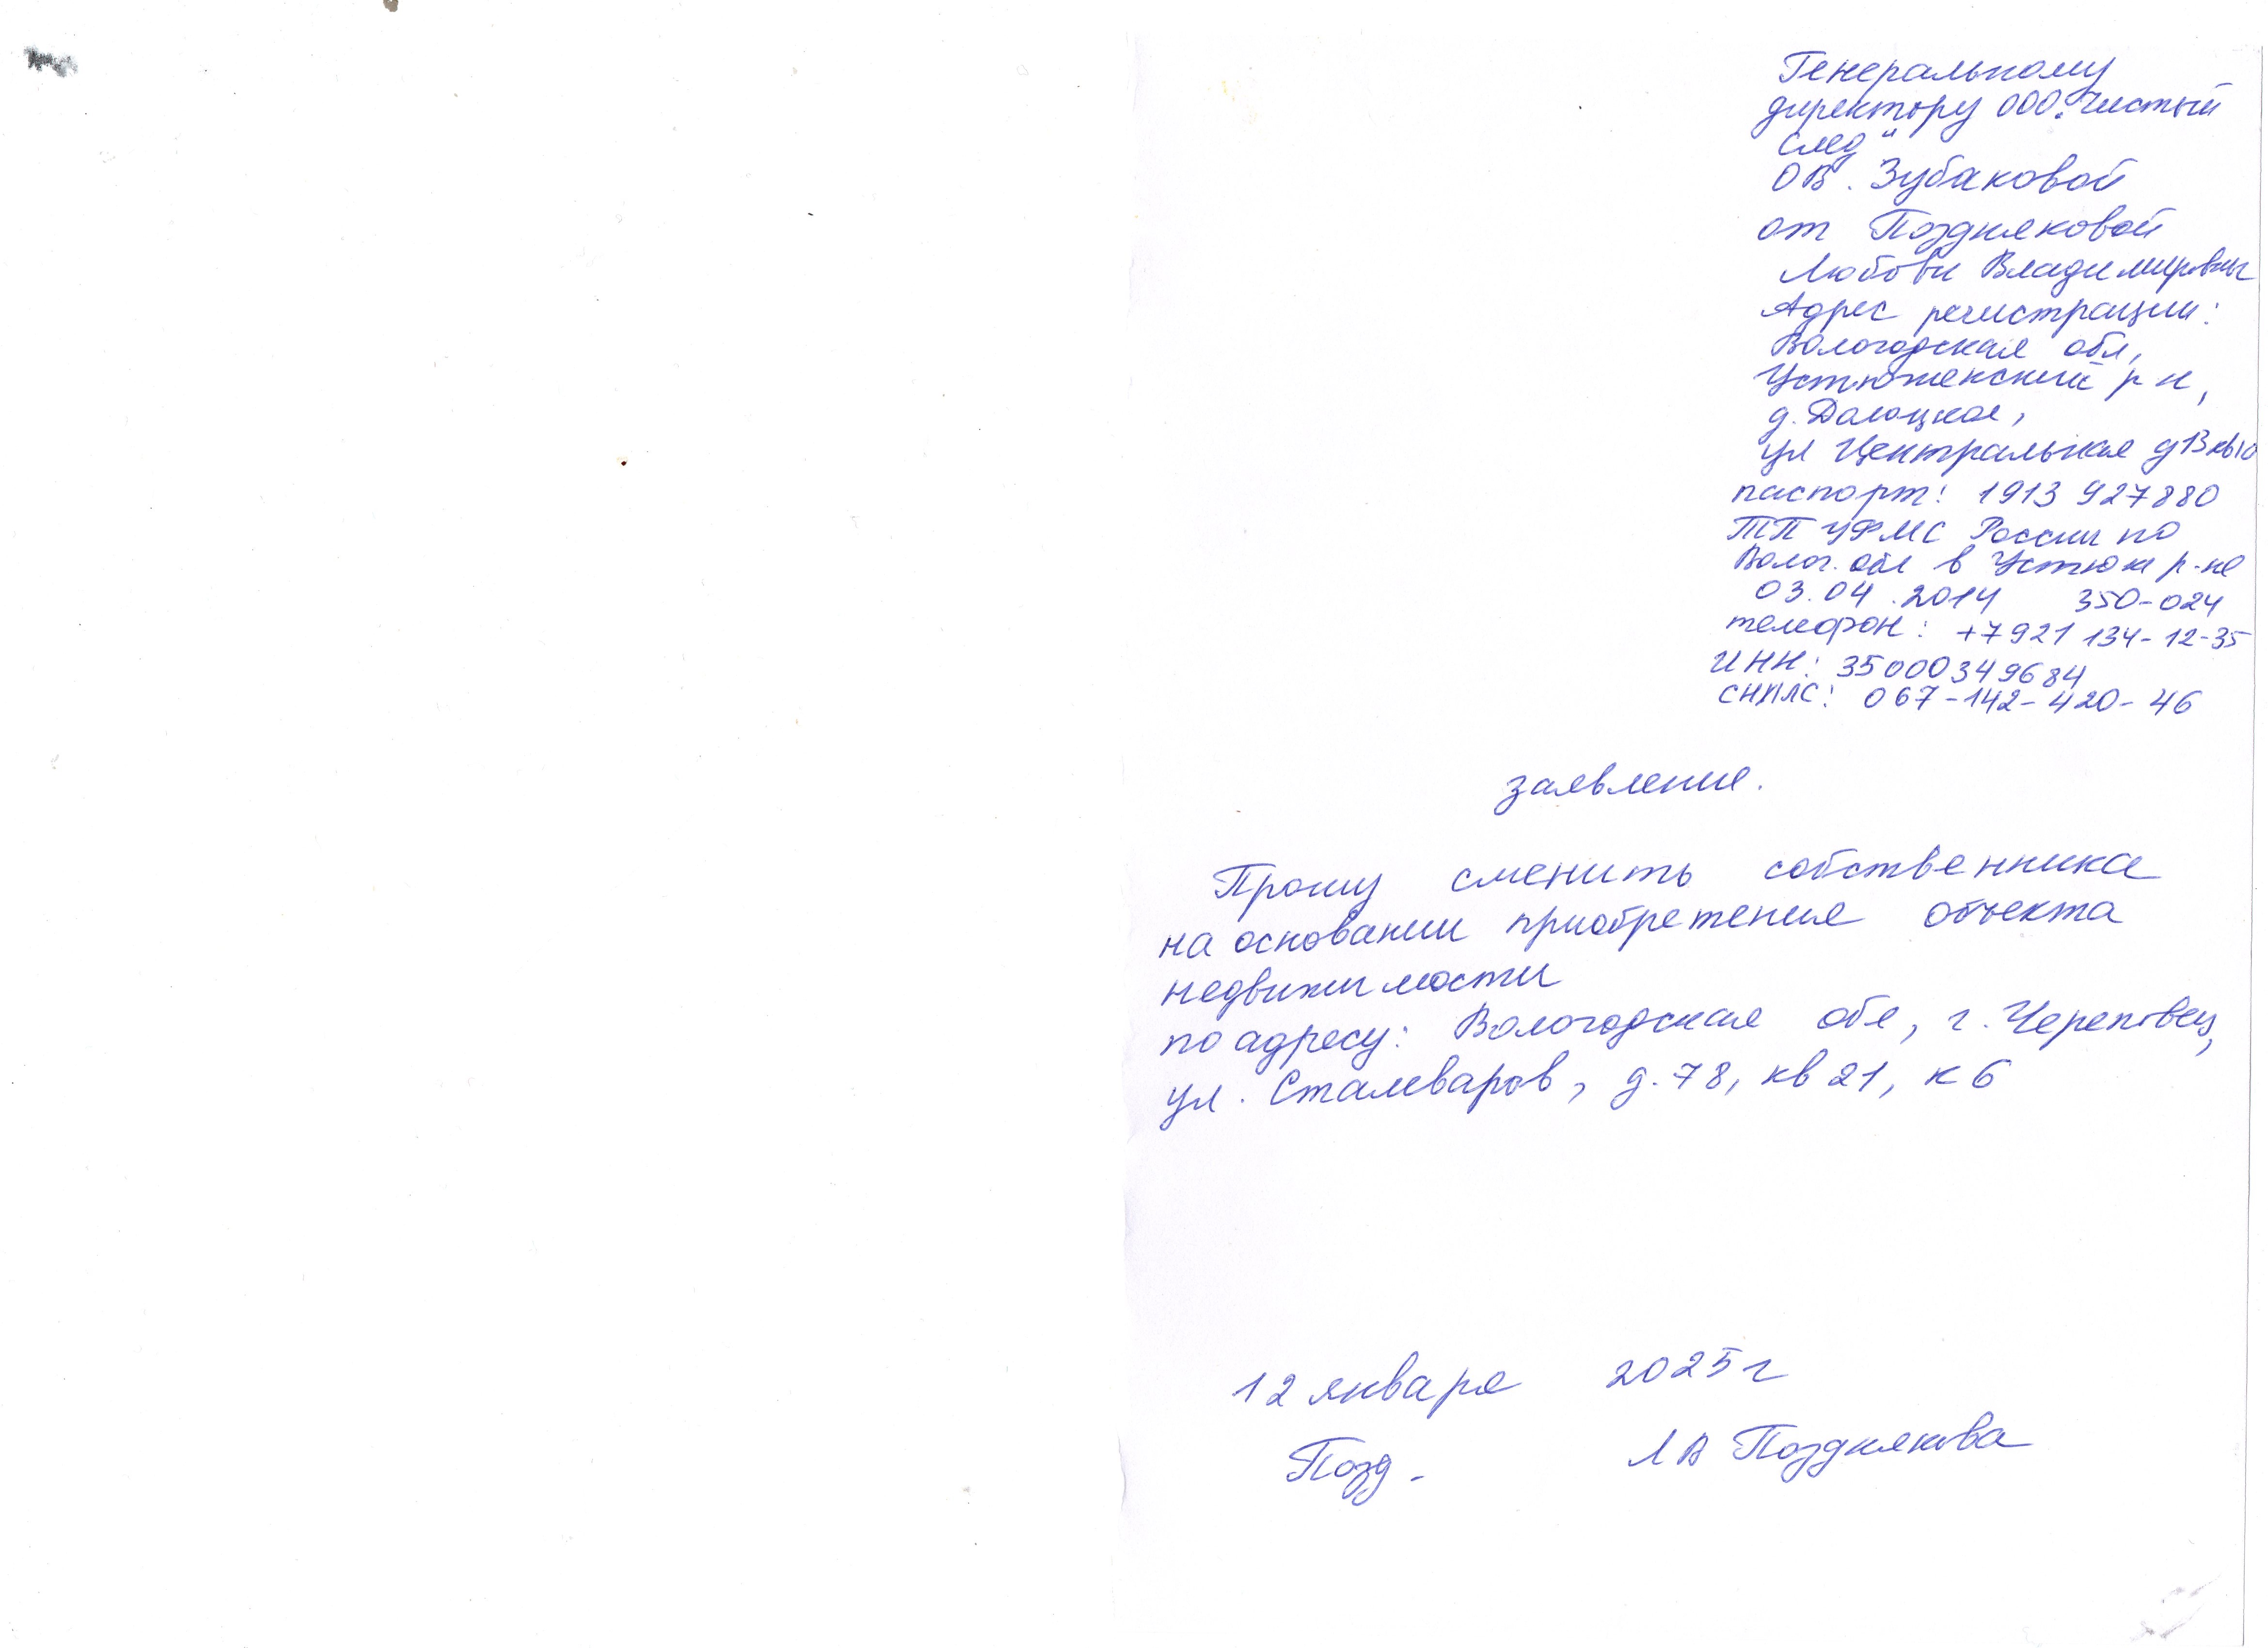 Генеральному
директору ООО "Чистый
след"
ОВ. Зубаковой
от Поздняковой
Любови Владимировны
Адрес регистрации:
Вологодская обл,
Устюженский р н,
д. Долоцкое,
ул Центральная д13 кв10
паспорт: 1913 927880
ТП УФМС России по
Волог. обл в Устюж р-не
03.04.2014 350-024
телефон: +7921 134-12-35
ИНН: 35000349684
СНИЛС: 067-142-420-46
заявление.
Прошу сменить собственника
на основании приобретения объекта
недвижимости
по адресу: Вологодская обл, г. Череповец,
ул. Сталеваров, д. 78, кв 21, к 6
12 января 2025 г
Позд- ЛВ Позднякова